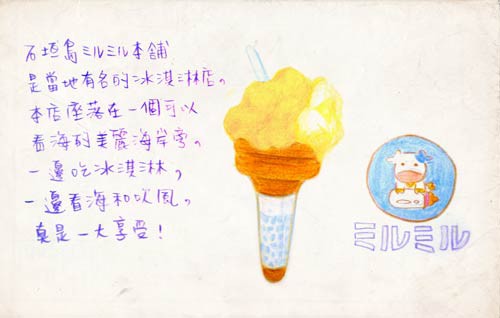 石垣島ミルミル本舗
是當地有名的冰淇淋店。
本店座落在一個可以
看海的美麗海岸旁。
一邊吃冰淇淋，
一邊看海和吹風。
真是一大享受！
ミルミル